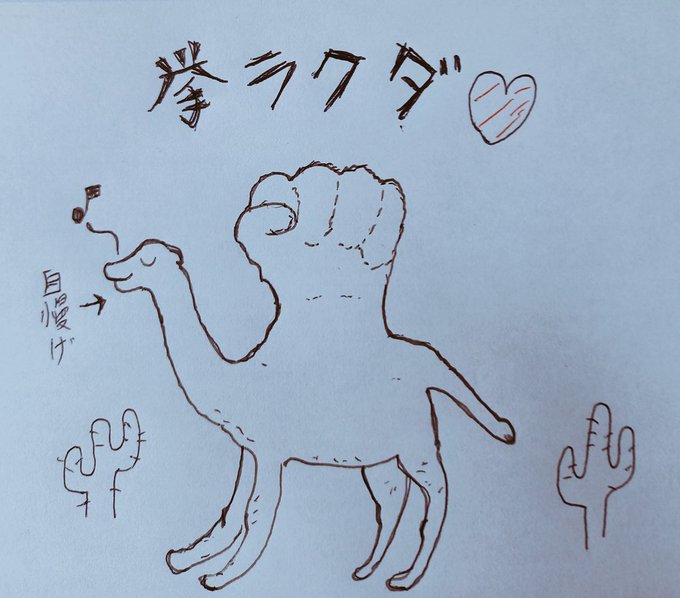 拳ラクダ
自慢げ